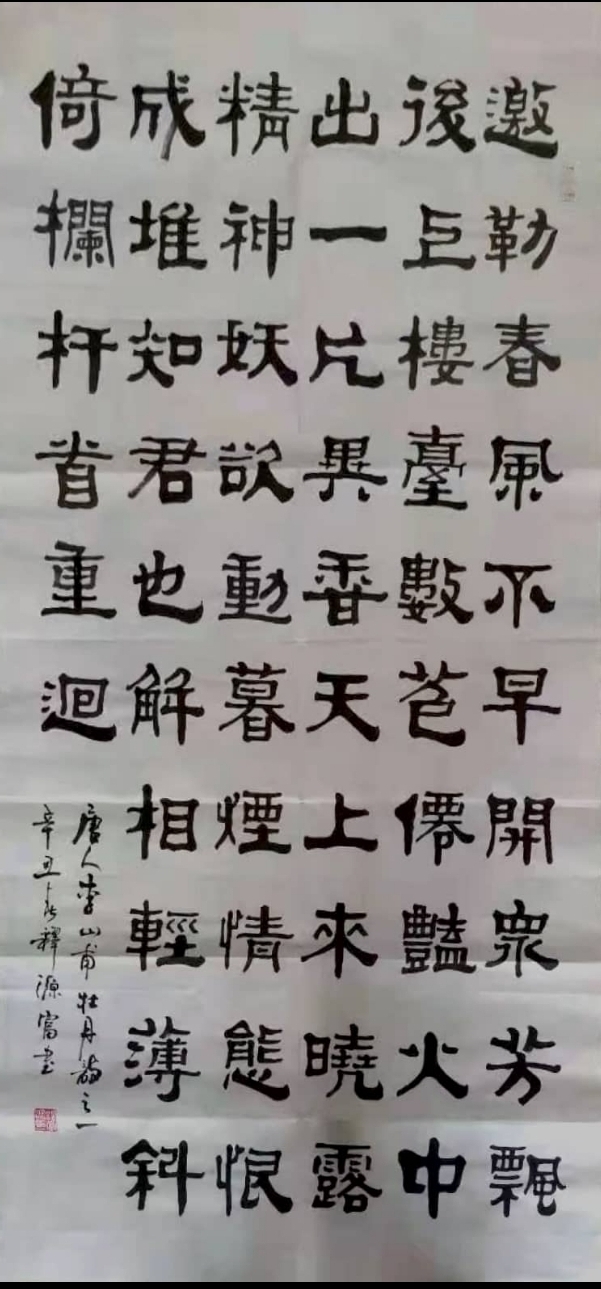 邀勒春風不早開衆芳飄
後上樓臺數苞僊豔火中
出一片異香天上來曉露
精神妖欲動暮煙情態恨
成堆知君也解相輕薄斜
倚欄杆首重迴
唐人李山甫牡丹詩之一
辛丑春釋源富書